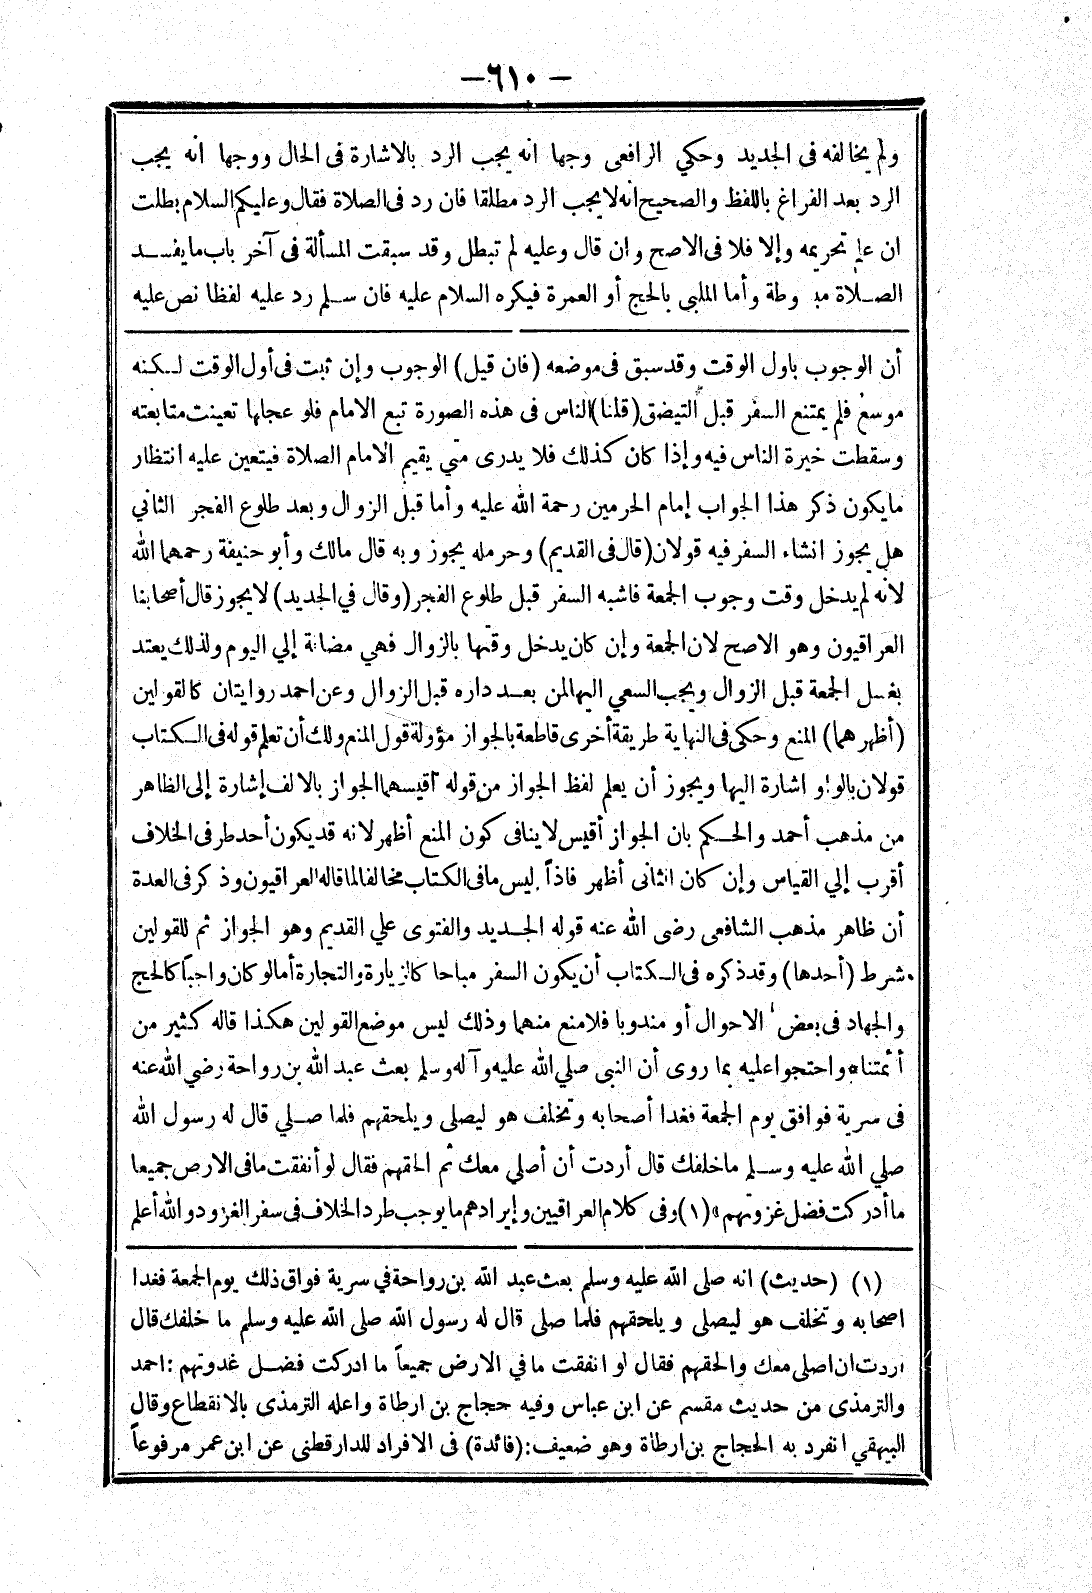 — ٦١٠ —
ولم يخالفه فى الجديد وحكي الرافعى وجها انه يجب الرد بالاشارة فى الحال ووجها انه يجب
الرد بعد الفراغ باللفظ والصحيح انه لا يجب الرد مطلقا فان رد فى الصلاة فقال وعليكم السلام بطلت
ان علم تحريمه وإلا فلا فى الاصح وان قال وعليه لم تبطل وقد سبقت المسألة فى آخر باب ما يفسد
الصلاة مبسوطة وأما الملبى بالحج أو العمرة فيكره السلام عليه فان سلم رد عليه لفظا نص عليه
أن الوجوب باول الوقت وقد سبق فى موضعه (فان قيل) الوجوب وإن ثبت فى أول الوقت لكنه
موسع فلم يمتنع السفر قبل التيضق (قلنا) الناس فى هذه الصورة تبع الامام فلو عجلها تعينت متابعته
وسقطت خيرة الناس فيه وإذا كان كذلك فلا يدرى متي يقيم الامام الصلاة فيتعين عليه انتظار
ما يكون ذكر هذا الجواب إمام الحرمين رحمة الله عليه وأما قبل الزوال وبعد طلوع الفجر الثاني
هل يجوز انشاء السفر فيه قولان (قال فى القديم) وحرمله يجوز وبه قال مالك وأبو حنيفة رحمهما الله
لانه لم يدخل وقت وجوب الجمعة فاشبه السفر قبل طلوع الفجر (وقال في الجديد) لا يجوز قال أصحابنا
العراقيون وهو الاصح لان الجمعة وإن كان يدخل وقتها بالزوال فهي مضافة إلي اليوم ولذلك يعتد
بغسل الجمعة قبل الزوال ويجب السعي اليها لمن بعد داره قبل الزوال وعن احمد روايتان كالقولين
(أظهرهما) المنع وحكى فى النهاية طريقة أخرى قاطعة بالجواز مؤولة قول المنع ولك أن تعلم قوله فى الكتاب
قولان بالواو اشارة اليها ويجوز أن يعلم لفظ الجواز من قوله أقيسهما الجواز بالالف إشارة إلى الظاهر
من مذهب أحمد والحكم بان الجواز أقيس لا ينافى كون المنع أظهر لانه قد يكون أحد طرفى الخلاف
أقرب إلي القياس وإن كان الثانى أظهر فاذاً ليس ما فى الكتاب مخالفا لما قاله العراقيون وذكر فى العدة
أن ظاهر مذهب الشافعى رضى الله عنه قوله الجديد والفتوى علي القديم وهو الجواز ثم للقولين
شرط (أحدها) وقد ذكره فى الكتاب أن يكون السفر مباحا كالزيارة والتجارة أما لو كان واجباً كالحج
والجهاد فى بعض الاحوال أو مندوبا فلا منع منهما وذلك ليس موضع القولين هكذا قاله كثير من
أئمتنا* واحتجوا عليه بما روى أن النبى صلي الله عليه وآله وسلم بعث عبد الله بن رواحة رضي الله عنه
فى سرية فوافق يوم الجمعة فغدا أصحابه وتخلف هو ليصلى ويلحقهم فلما صلي قال له رسول الله
صلي الله عليه وسلم ما خلفك قال أردت أن أصلي معك ثم الحقهم فقال لو أنفقت ما فى الارض جميعا
ما أدركت فضل غزوتهم» (١) وفى كلام العراقيين وإيرادهم ما يوجب طرد الخلاف فى سفر الغزو والله أعلم
(١) (حديث) انه صلى الله عليه وسلم بعث عبد الله بن رواحة في سرية فوافق ذلك يوم الجمعة فغدا
اصحابه وتخلف هو ليصلى ويلحقهم فلما صلى قال له رسول الله صلى الله عليه وسلم ما خلفك قال
اردت ان اصلى معك والحقهم فقال لو انفقت ما في الارض جميعاً ما ادركت فضل غدوتهم: احمد
والترمذى من حديث مقسم عن ابن عباس وفيه حجاج بن ارطاة واعله الترمذى بالانقطاع وقال
البيهقي انفرد به الحجاج بن ارطاة وهو ضعيف: (فائدة) فى الافراد للدارقطنى عن ابن عمر مرفوعاً